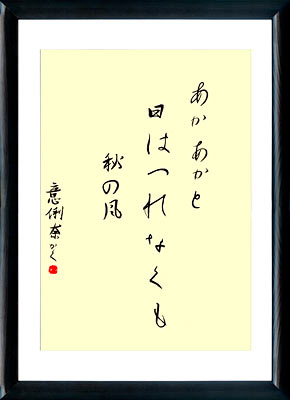 あかあかと
日はつれなくも
秋の風
意俐奈かく